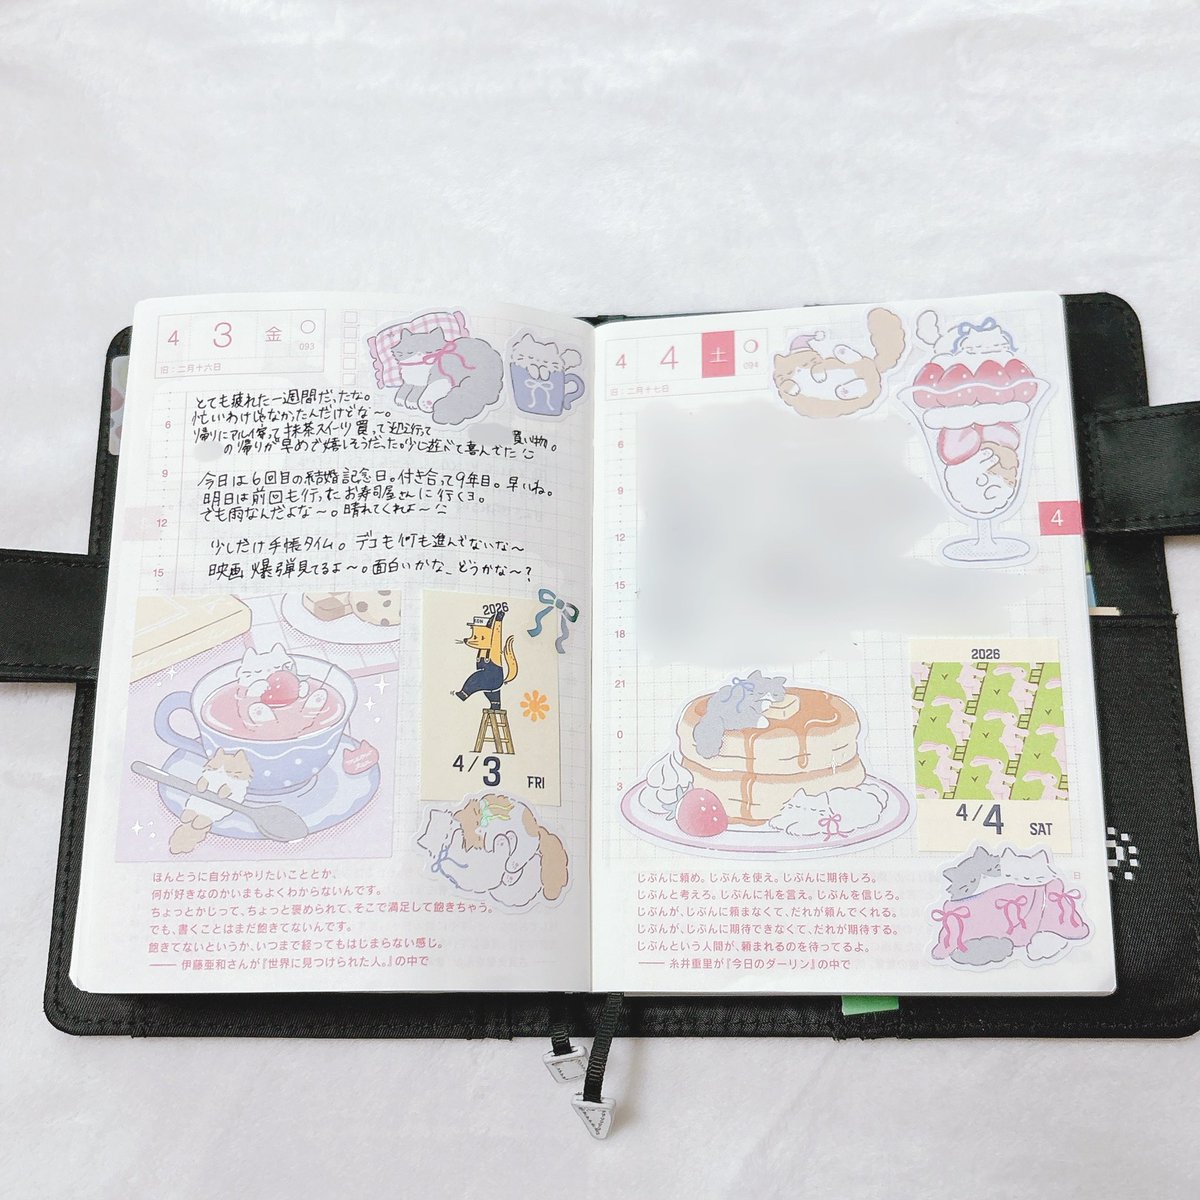 4 3 金
093
旧:二月十六日
とても疲れた一週間だったな。
忙しいわけじゃなかったんだけどな〜。
帰りにアルイ寄って抹茶スイーツ買って
買い物。
の帰りが早めで嬉しそうだった。少し遊べて喜んでた
今日は6回目の結婚記念日。付き合って9年目。早いね。
明日は前回も行ったお寿司屋さんに行くヨ。
でも雨なんだよな〜。晴れてくれよ〜
少しだけ手帳タイム。デコも何も進んでないな〜
映画 爆弾見てるよ〜。面白いかな_どうかな〜?
6
9
12
15
2026
4/3 FRI
ほんとうに自分がやりたいこととか、
何が好きなのかいまもよくわからないんです。
ちょっとかじって、ちょっと褒められて、そこで満足して飽きちゃう。
でも、書くことはまだ飽きてないんです。
飽きてないというか、いつまで経ってもはじまらない感じ。
―― 伊藤亜和さんが『世界に見つけられた人。』の中で
4 4 土
094
旧:二月十七日
6
9
12
15
18
21
0
3
4
2026
4/4 SAT
じぶんに頼め。じぶんを使え。じぶんに期待しろ。
じぶんと考えろ。じぶんに礼を言え。じぶんを信じろ。
じぶんが、じぶんに頼まなくて、だれが頼んでくれる。
じぶんが、じぶんに期待できなくて、だれが期待する。
じぶんという人間が、頼まれるのを待ってるよ。
―― 糸井重里が『今日のダーリン』の中で